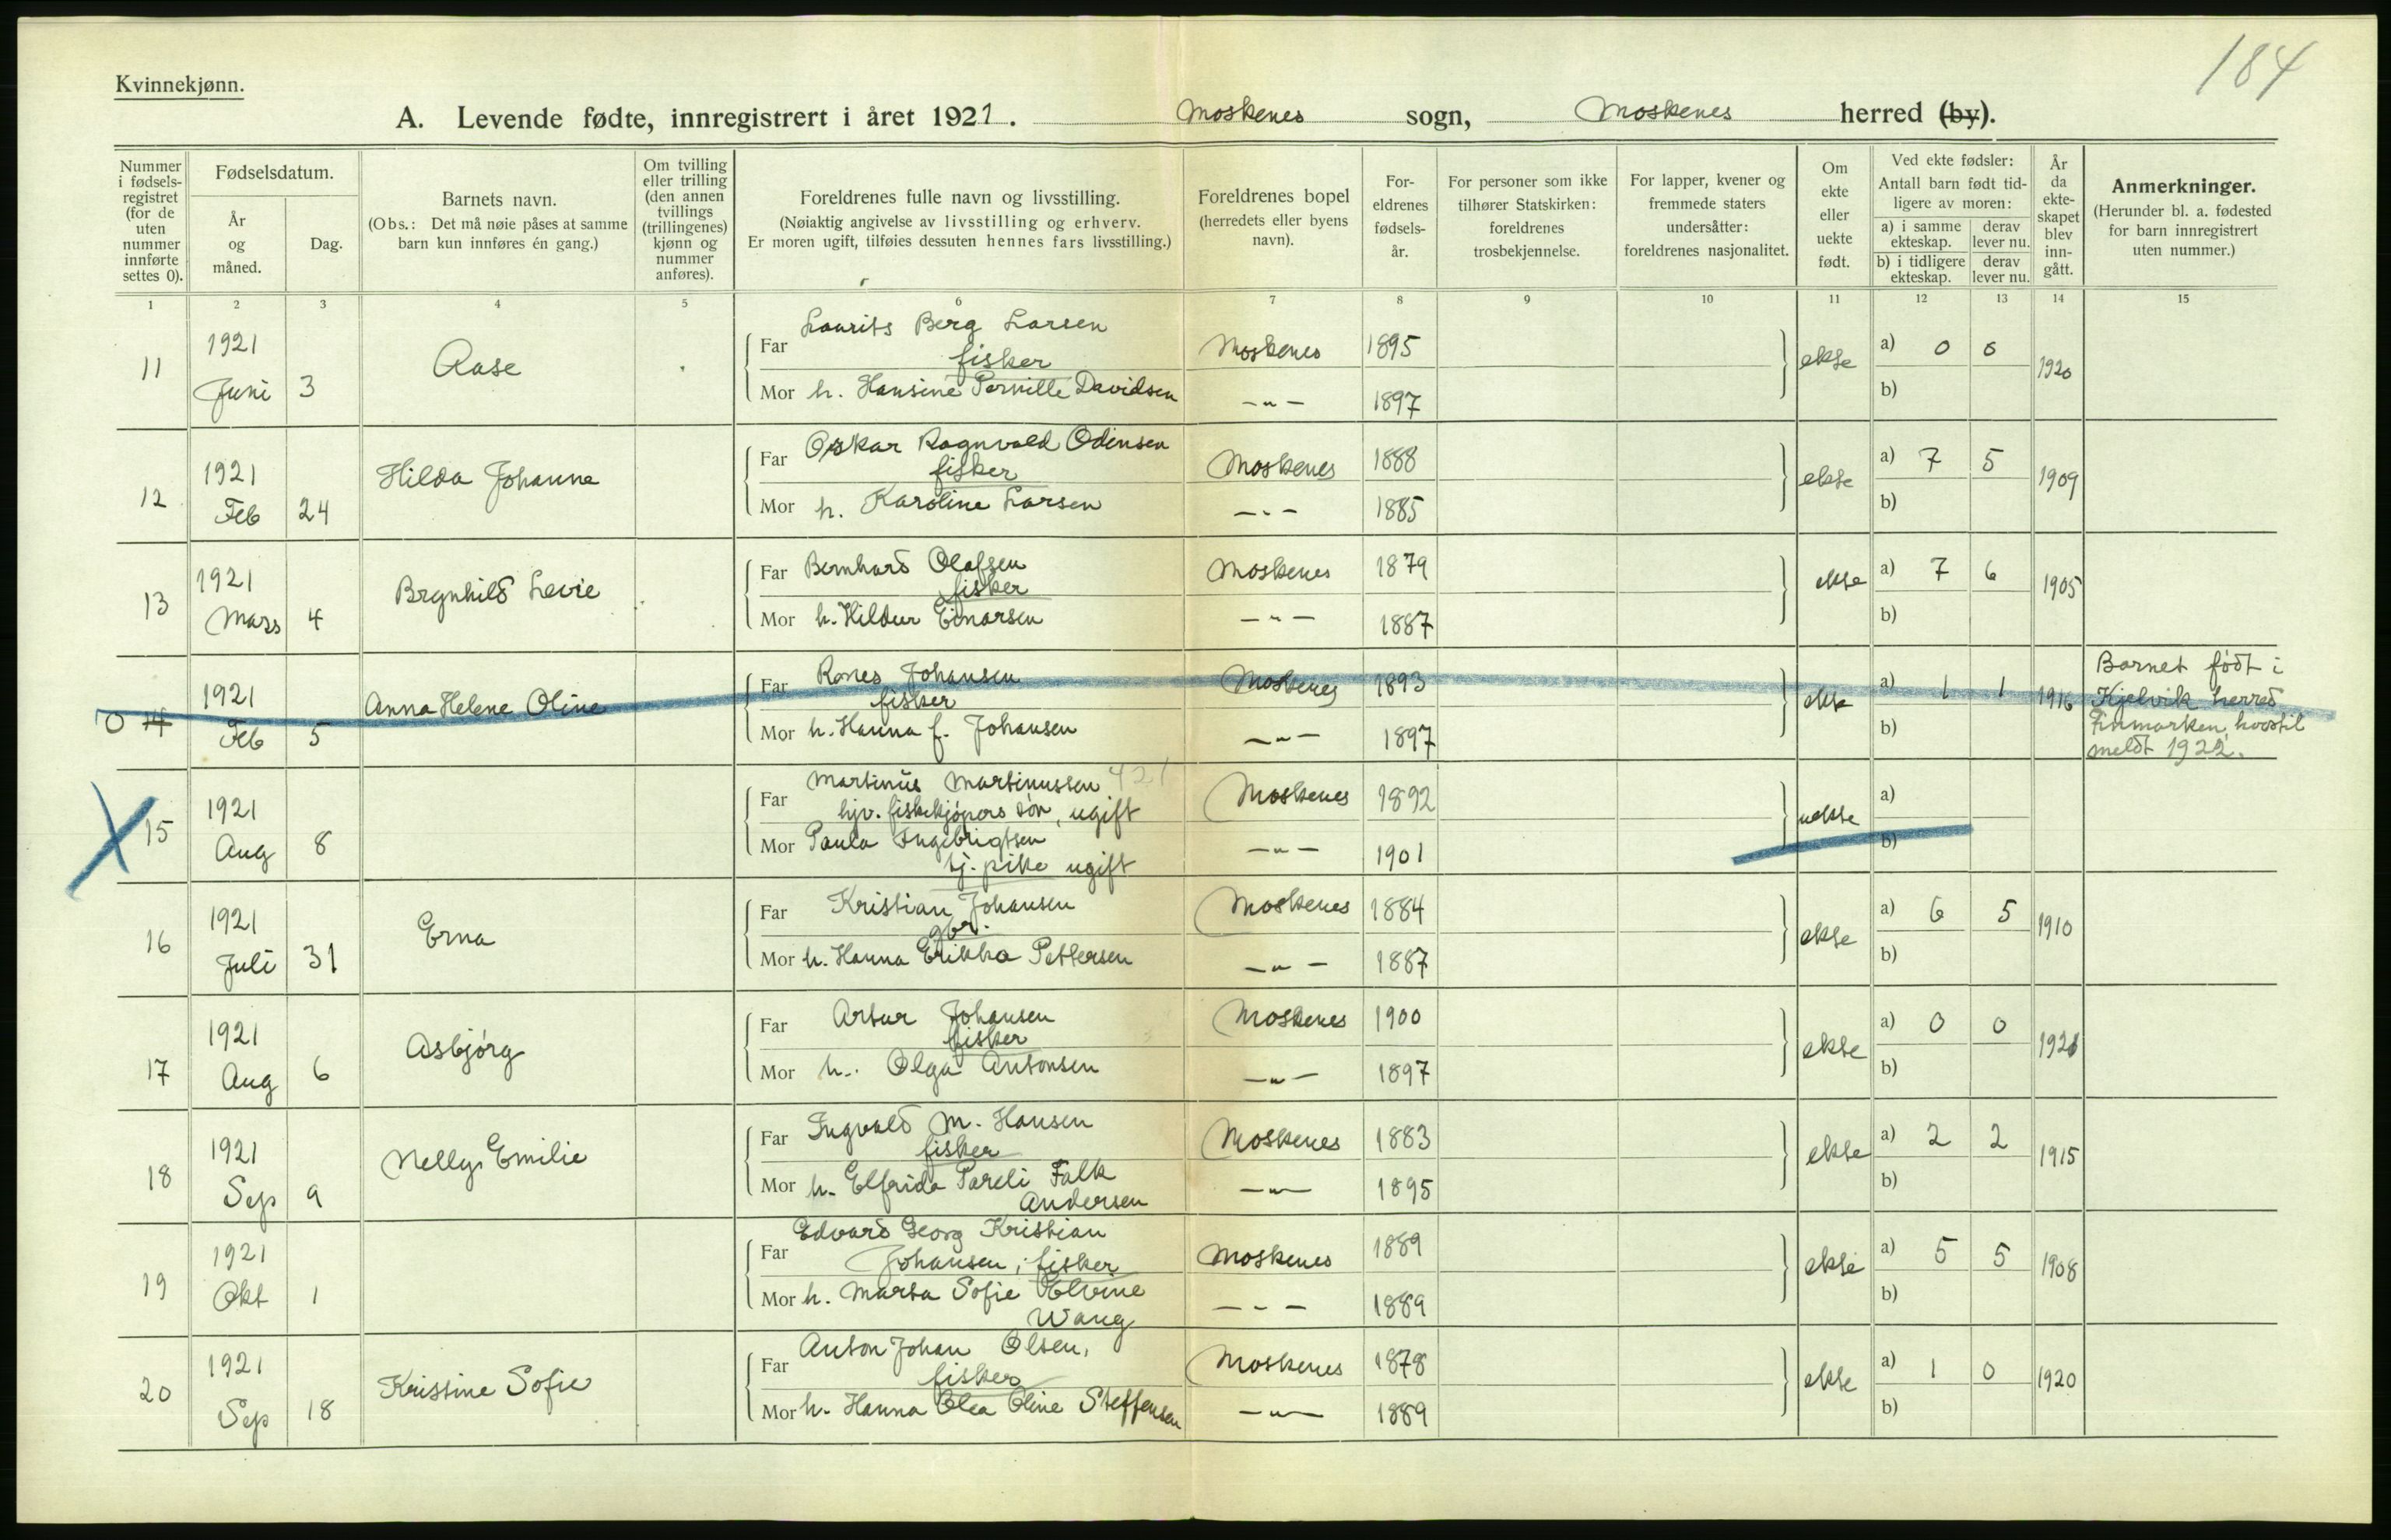 184
Kvinnekjønn.
A. Levende fødte, innregistrert i året 1921. Moskenes sogn, Moskenes herred (by).
Nummer i fødsels- registret (for de uten nummer innførte settes 0).
Fødselsdatum.
År og måned.
Dag.
Barnets navn.
(Obs.: Det må nøie påses at samme barn kun innføres én gang.)
Om tvilling eller trilling (den annen tvillings (trillingenes) kjønn og nummer anføres).
Foreldrenes fulle navn og livsstilling.
(Nøiaktig angivelse av livsstilling og erhverv.
Er moren ugift, tilføies dessuten hennes fars livsstilling.)
Foreldrenes bopel (herredets eller byens navn).
For- eldrenes fødsels- år.
For personer som ikke tilhører Statskirken: foreldrenes trosbekjennelse.
For lapper, kvener og fremmede staters undersåtter: foreldrenes nasjonalitet.
Om ekte eller uekte født.
Ved ekte fødsler:
Antall barn født tid- ligere av moren:
a) i samme ekteskap.
derav lever nu.
b) i tidligere ekteskap.
derav lever nu.
År da ekte- skapet blev inn- gått.
Anmerkninger.
(Herunder bl. a. fødested for barn innregistrert uten nummer.)
1 2 3 4 5 6 7 8 9 10 11 12 13 14 15
11 1921 Juni 3 Aase
Far Laurits Berg Larsen fisker Moskenes 1895 ekte a) 0 0 1920
Mor h. Hansine Pernille Davidsen -"- 1897 b)
12 1921 Feb 24 Hilda Johanne
Far Oskar Ragnvald Odinsen fisker Moskenes 1888 ekte a) 7 5 1909
Mor h. Karoline Larsen -"- 1885 b)
13 1921 Mars 4 Brynhild Levie
Far Bernhard Olafsen fisker Moskenes 1879 ekte a) 7 6 1905
Mor h. Hildur Einarsen -"- 1887 b)
0 14 1921 Feb 5 Anna Helene Oline
Far Johansen fisker Moskenes 1893 ekte a) 1 1 1916
Mor h. Hanna f. Johansen -"- 1897 b)
Barnet født i
Kjelvik herred
Finmarken, hvortil
meldt 1922.
15 1921 Aug 8
Far Martinus Martinussen 421
hjv. fiskekjøpers søn, ugift Moskenes 1892 uekte a)
Mor Paula Ingebrigtsen
tj. pike ugift -"- 1901 b)
16 1921 Juli 31 Erna
Far Kristian Johansen gbr. Moskenes 1884 ekte a) 6 5 1910
Mor h. Hanna Erikka Pettersen -"- 1887 b)
17 1921 Aug 6 Asbjørg
Far Artur Johansen fisker Moskenes 1900 ekte a) 0 0 1921
Mor h. Olga Antonsen -"- 1897 b)
18 1921 Sep 9 Nelly Emilie
Far Ingvald M. Hansen fisker Moskenes 1883 ekte a) 2 2 1915
Mor h. Elfrida Pareli Falk
Andersen -"- 1895 b)
19 1921 Okt 1
Far Edvard Georg Kristian
Johansen, fisker Moskenes 1889 ekte a) 5 5 1908
Mor h. Marta Sofie Elvine
Wang -"- 1889 b)
20 1921 Sep 18 Kristine Sofie
Far Anton Johan Olsen,
fisker Moskenes 1878 ekte a) 1 0 1920
Mor h. Hanna Olea Oline Steffensen -"- 1889 b)